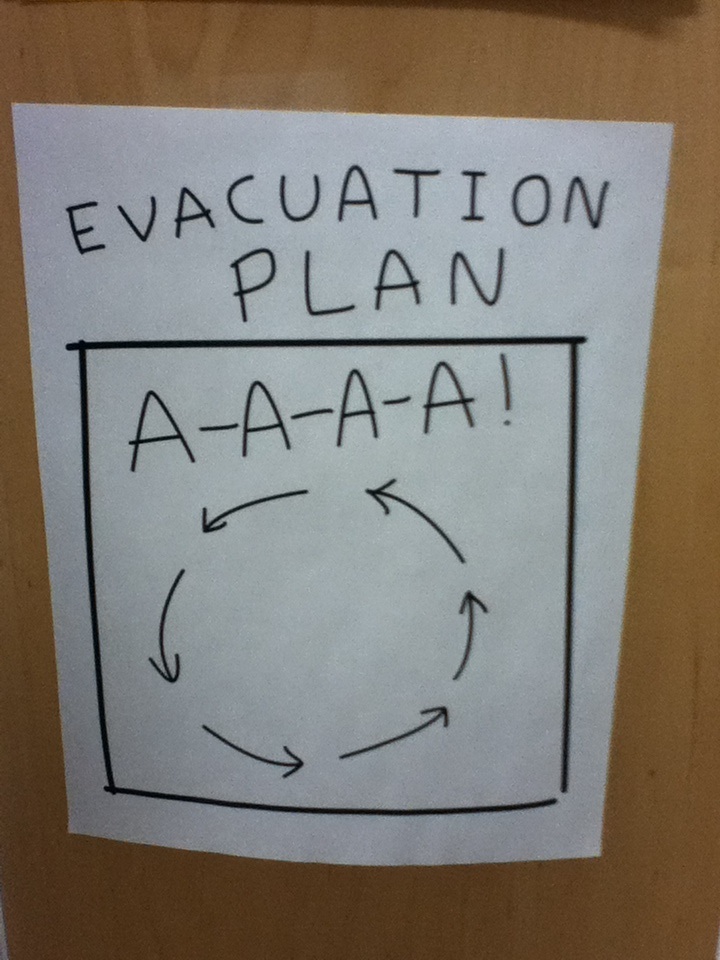 EVACUATION
PLAN
A-A-A-A!